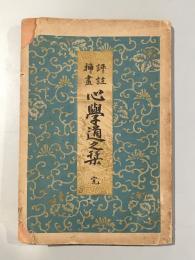 評註
挿畫
心學道之栞 完